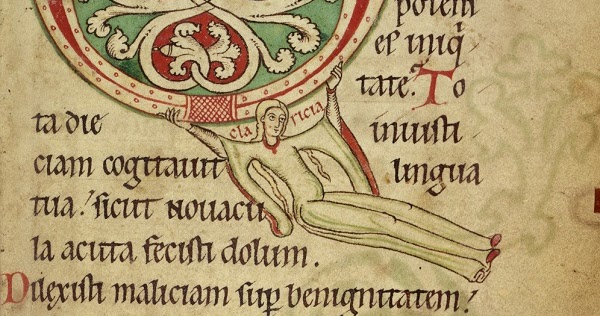 potens
es iniq̇
tate? To
claricia
ta die inuisti
ciam cogitauit lingua
tua: sicut nouacu
la acuta fecisti dolum.
Dilexisti maliciam sup̲ benignitatem: